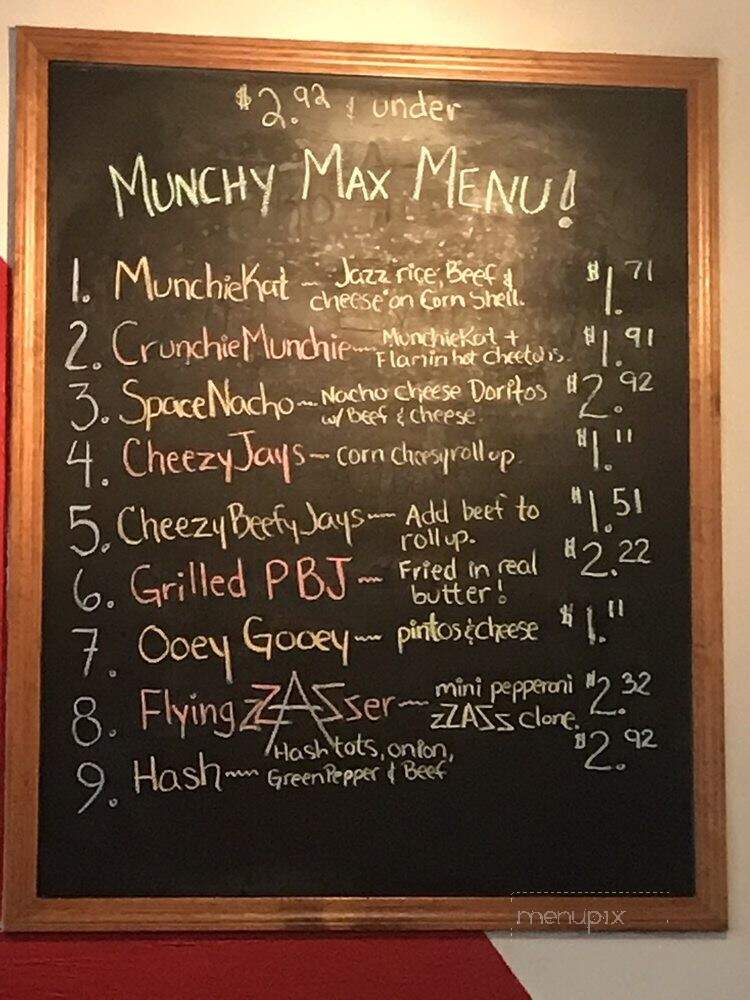 $2.92 & under
MUNCHY MAX MENU!
1. MunchieKat ~ Jazz rice, Beef & $1.71
cheese on Corn Shell.
2. CrunchieMunchie ~ MunchieKat + $1.91
Flamin hot cheetohs.
3. SpaceNacho ~ Nacho cheese Doritos $2.92
w/ Beef & cheese.
4. CheezyJays ~ corn cheesyrollup. $1.11
5. CheezyBeefyJays ~ Add beef to $1.51
rollup.
6. Grilled PBJ ~ Fried in real $2.22
butter!
7. Ooey Gooey ~ pintos & cheese $1.11
8. FlyingZZASSer ~ mini pepperoni $2.32
zZZASz clone.
9. Hash ~ Hash tots, onion, $2.92
GreenPepper & Beef
menupix